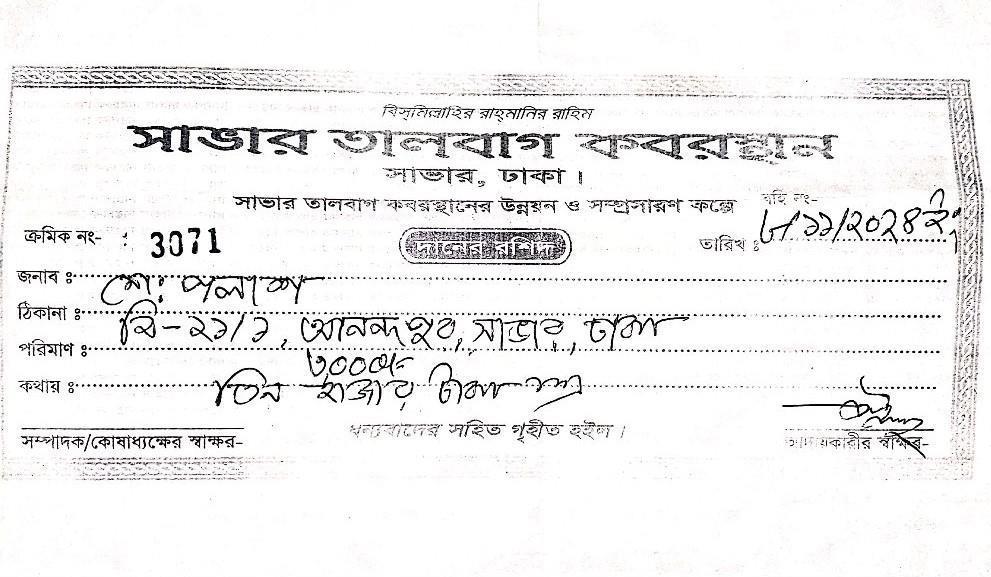 বিসমিল্লাহির রাহমানির রাহিম
সাভার তালবাগ কবরস্থান
সাভার, ঢাকা।
সাভার তালবাগ কবরস্থানের উন্নয়ন ও সম্প্রসারণ কল্পে
বহি নং-
ক্রমিক নং- : 3071
দানের রশিদ
তারিখ ঃ ১১/২০২৪ ইং
জনাব ঃ মোঃ পলাশ
ঠিকানা ঃ বি-২১/১, আনন্দপুর, সাভার, ঢাকা
পরিমাণ ঃ ৩০০০/=
কথায় ঃ তিন হাজার টাকা মাত্র
ধন্যবাদের সহিত গৃহীত হইল।
সম্পাদক/কোষাধ্যক্ষের স্বাক্ষর-
আদায়কারীর স্বাক্ষর-